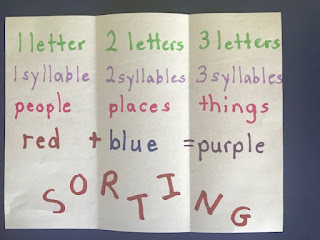 1 letter 2 letters 3 letters
1 syllable 2 syllables 3 syllables
people places things
red + blue = purple
SORTING